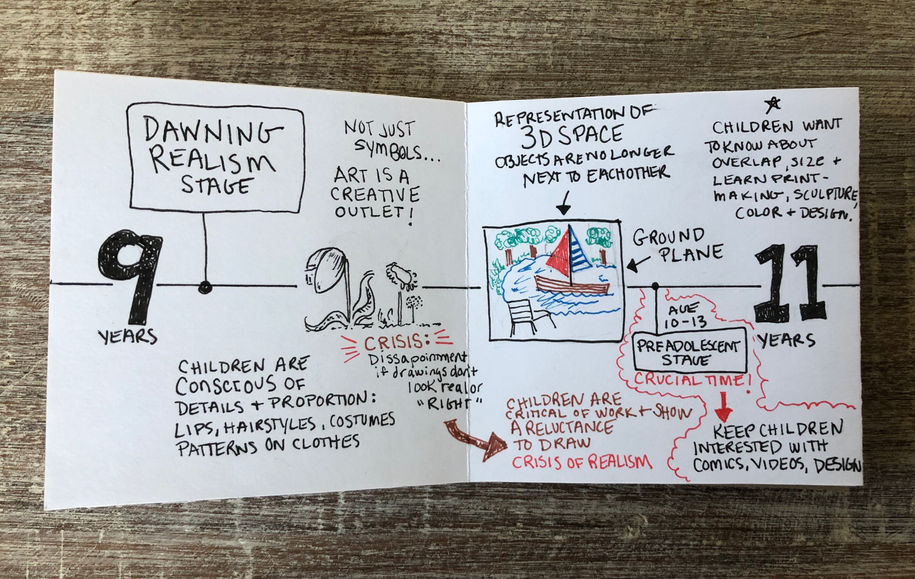 DAWNING
REALISM
STAGE
NOT JUST
SYMBOLS...
ART IS A
CREATIVE
OUTLET!
9
YEARS
CRISIS:
Dissapointment
if drawings don't
look real or
"RIGHT"
CHILDREN ARE
CONSCIOUS OF
DETAILS + PROPORTION:
LIPS, HAIRSTYLES, COSTUMES
PATTERNS ON CLOTHES
REPRESENTATION OF
3D SPACE
OBJECTS ARE NO LONGER
NEXT TO EACHOTHER
CHILDREN WANT
TO KNOW ABOUT
OVERLAP, SIZE +
LEARN PRINT-
MAKING, SCULPTURE,
COLOR + DESIGN!
GROUND
PLANE
11
YEARS
AGE
10-13
PREADOLESCENT
STAGE
CRUCIAL TIME!
CHILDREN ARE
CRITICAL OF WORK + SHOW
A RELUCTANCE
TO DRAW
CRISIS OF REALISM
KEEP CHILDREN
INTERESTED WITH
COMICS, VIDEOS, DESIGN